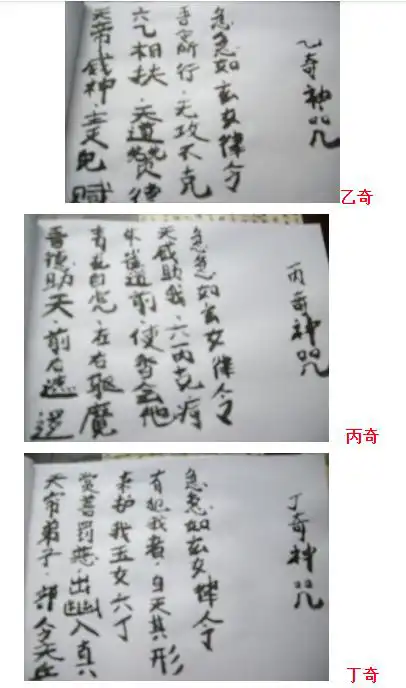 乙奇神咒
天帝威神·主灭鬼贼
六乙相扶·天道赞德
吾 所行·无攻不克
急急如玄女律令
乙奇
丙奇神咒
吾德助天·前后遮逻
青龙白虎·左右驱魔
朱雀道前·使吾会他
天威助我·六丙克病
急急如玄女律令
丙奇
丁奇神咒
天帝弟子·部令天兵
赏善罚恶·出幽入
来护我玉女六丁
有犯我者·自灭其形
急急如玄女律令
丁奇